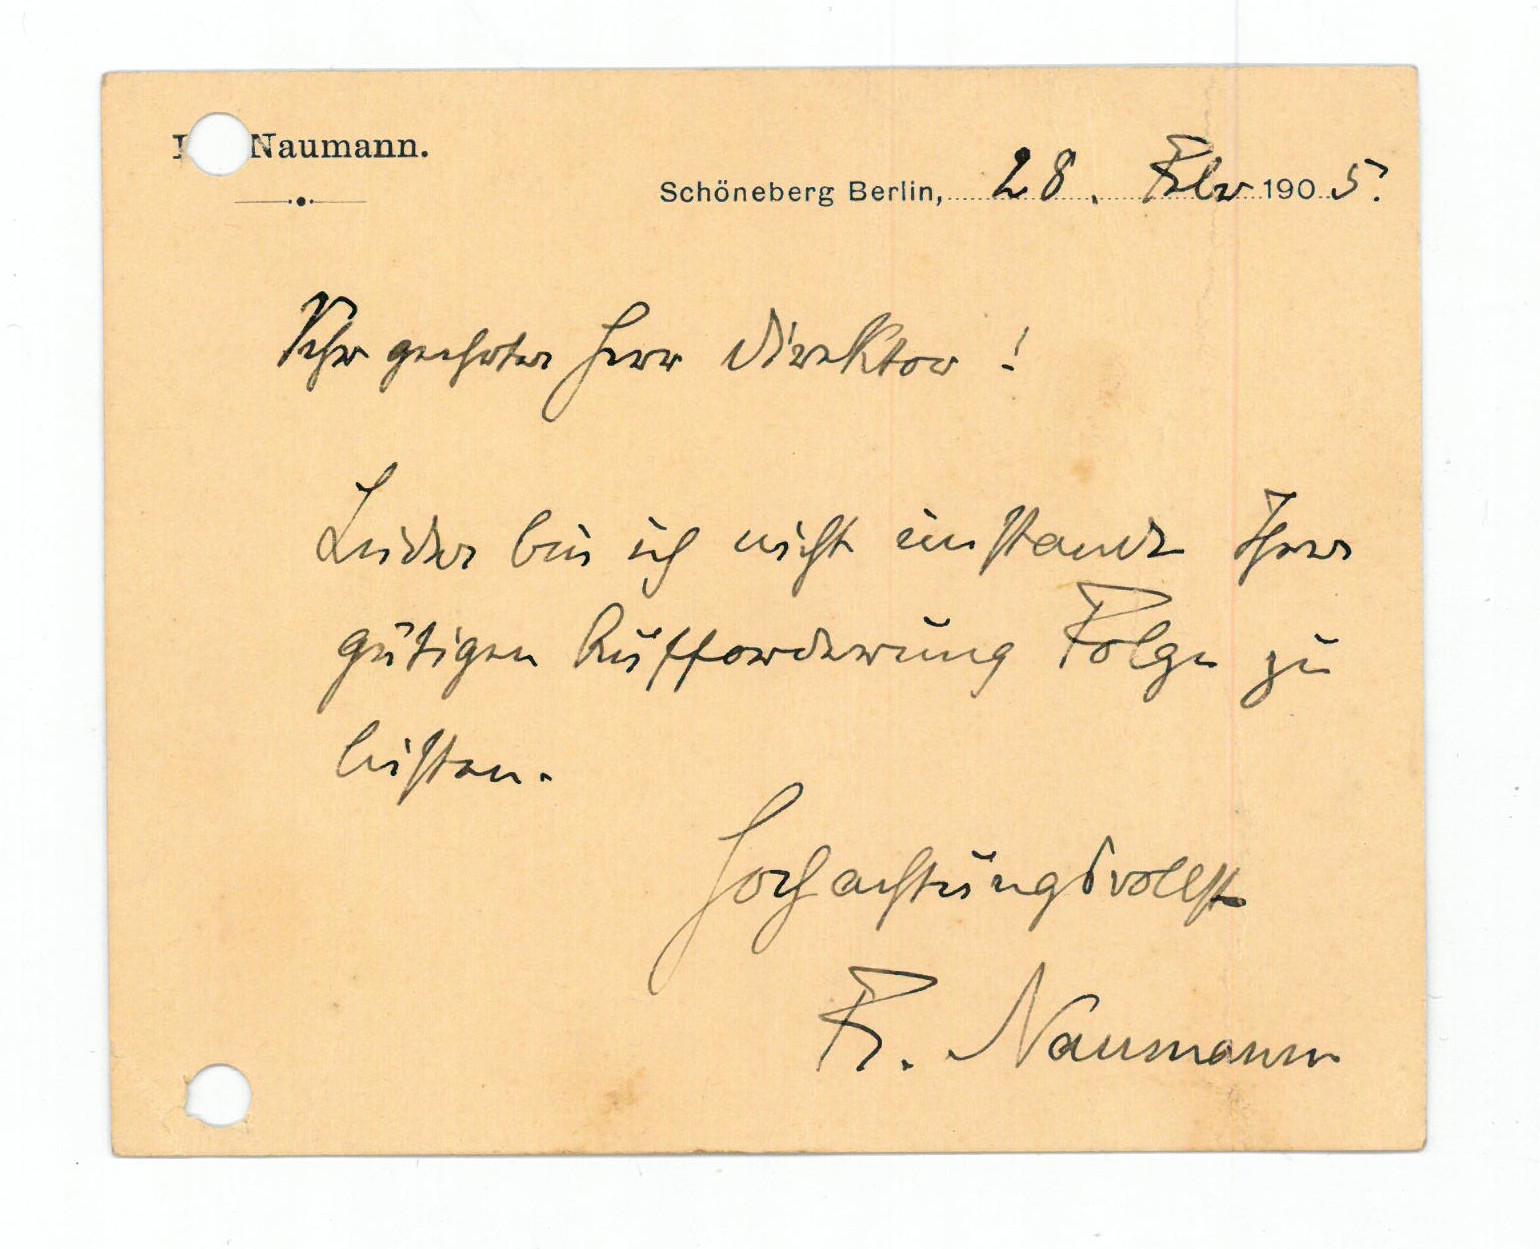 Naumann.
Schöneberg Berlin, 28. Febr 1905.
Sehr geehrter Herr Direktor!
Leider bin ich nicht imstande Ihrer
gütigen Aufforderung Folge zu
leisten.
Hochachtungsvollst
Fr. Naumann